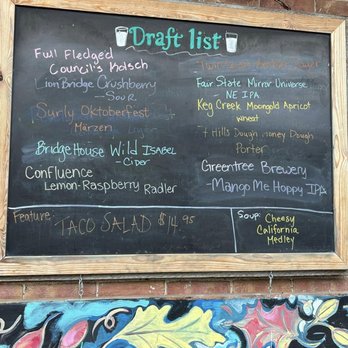 Draft list
Full Fledged
Council's Kolsch
Lion Bridge Crushberry
-Sour
Surly Oktoberfest
Marzen
Bridge House Wild Isabel
- Cider
Confluence
Lemon-Raspberry Radler
Fair State Mirror Universe
NE IPA
Keg Creek Moongold Apricot
wheat
7 Hills Dough money Dough
Porter
Greentree Brewery
-Mango Me Hoppy IPA
Feature:
TACO SALAD $14.95
Soup: Cheesy
California
Medley